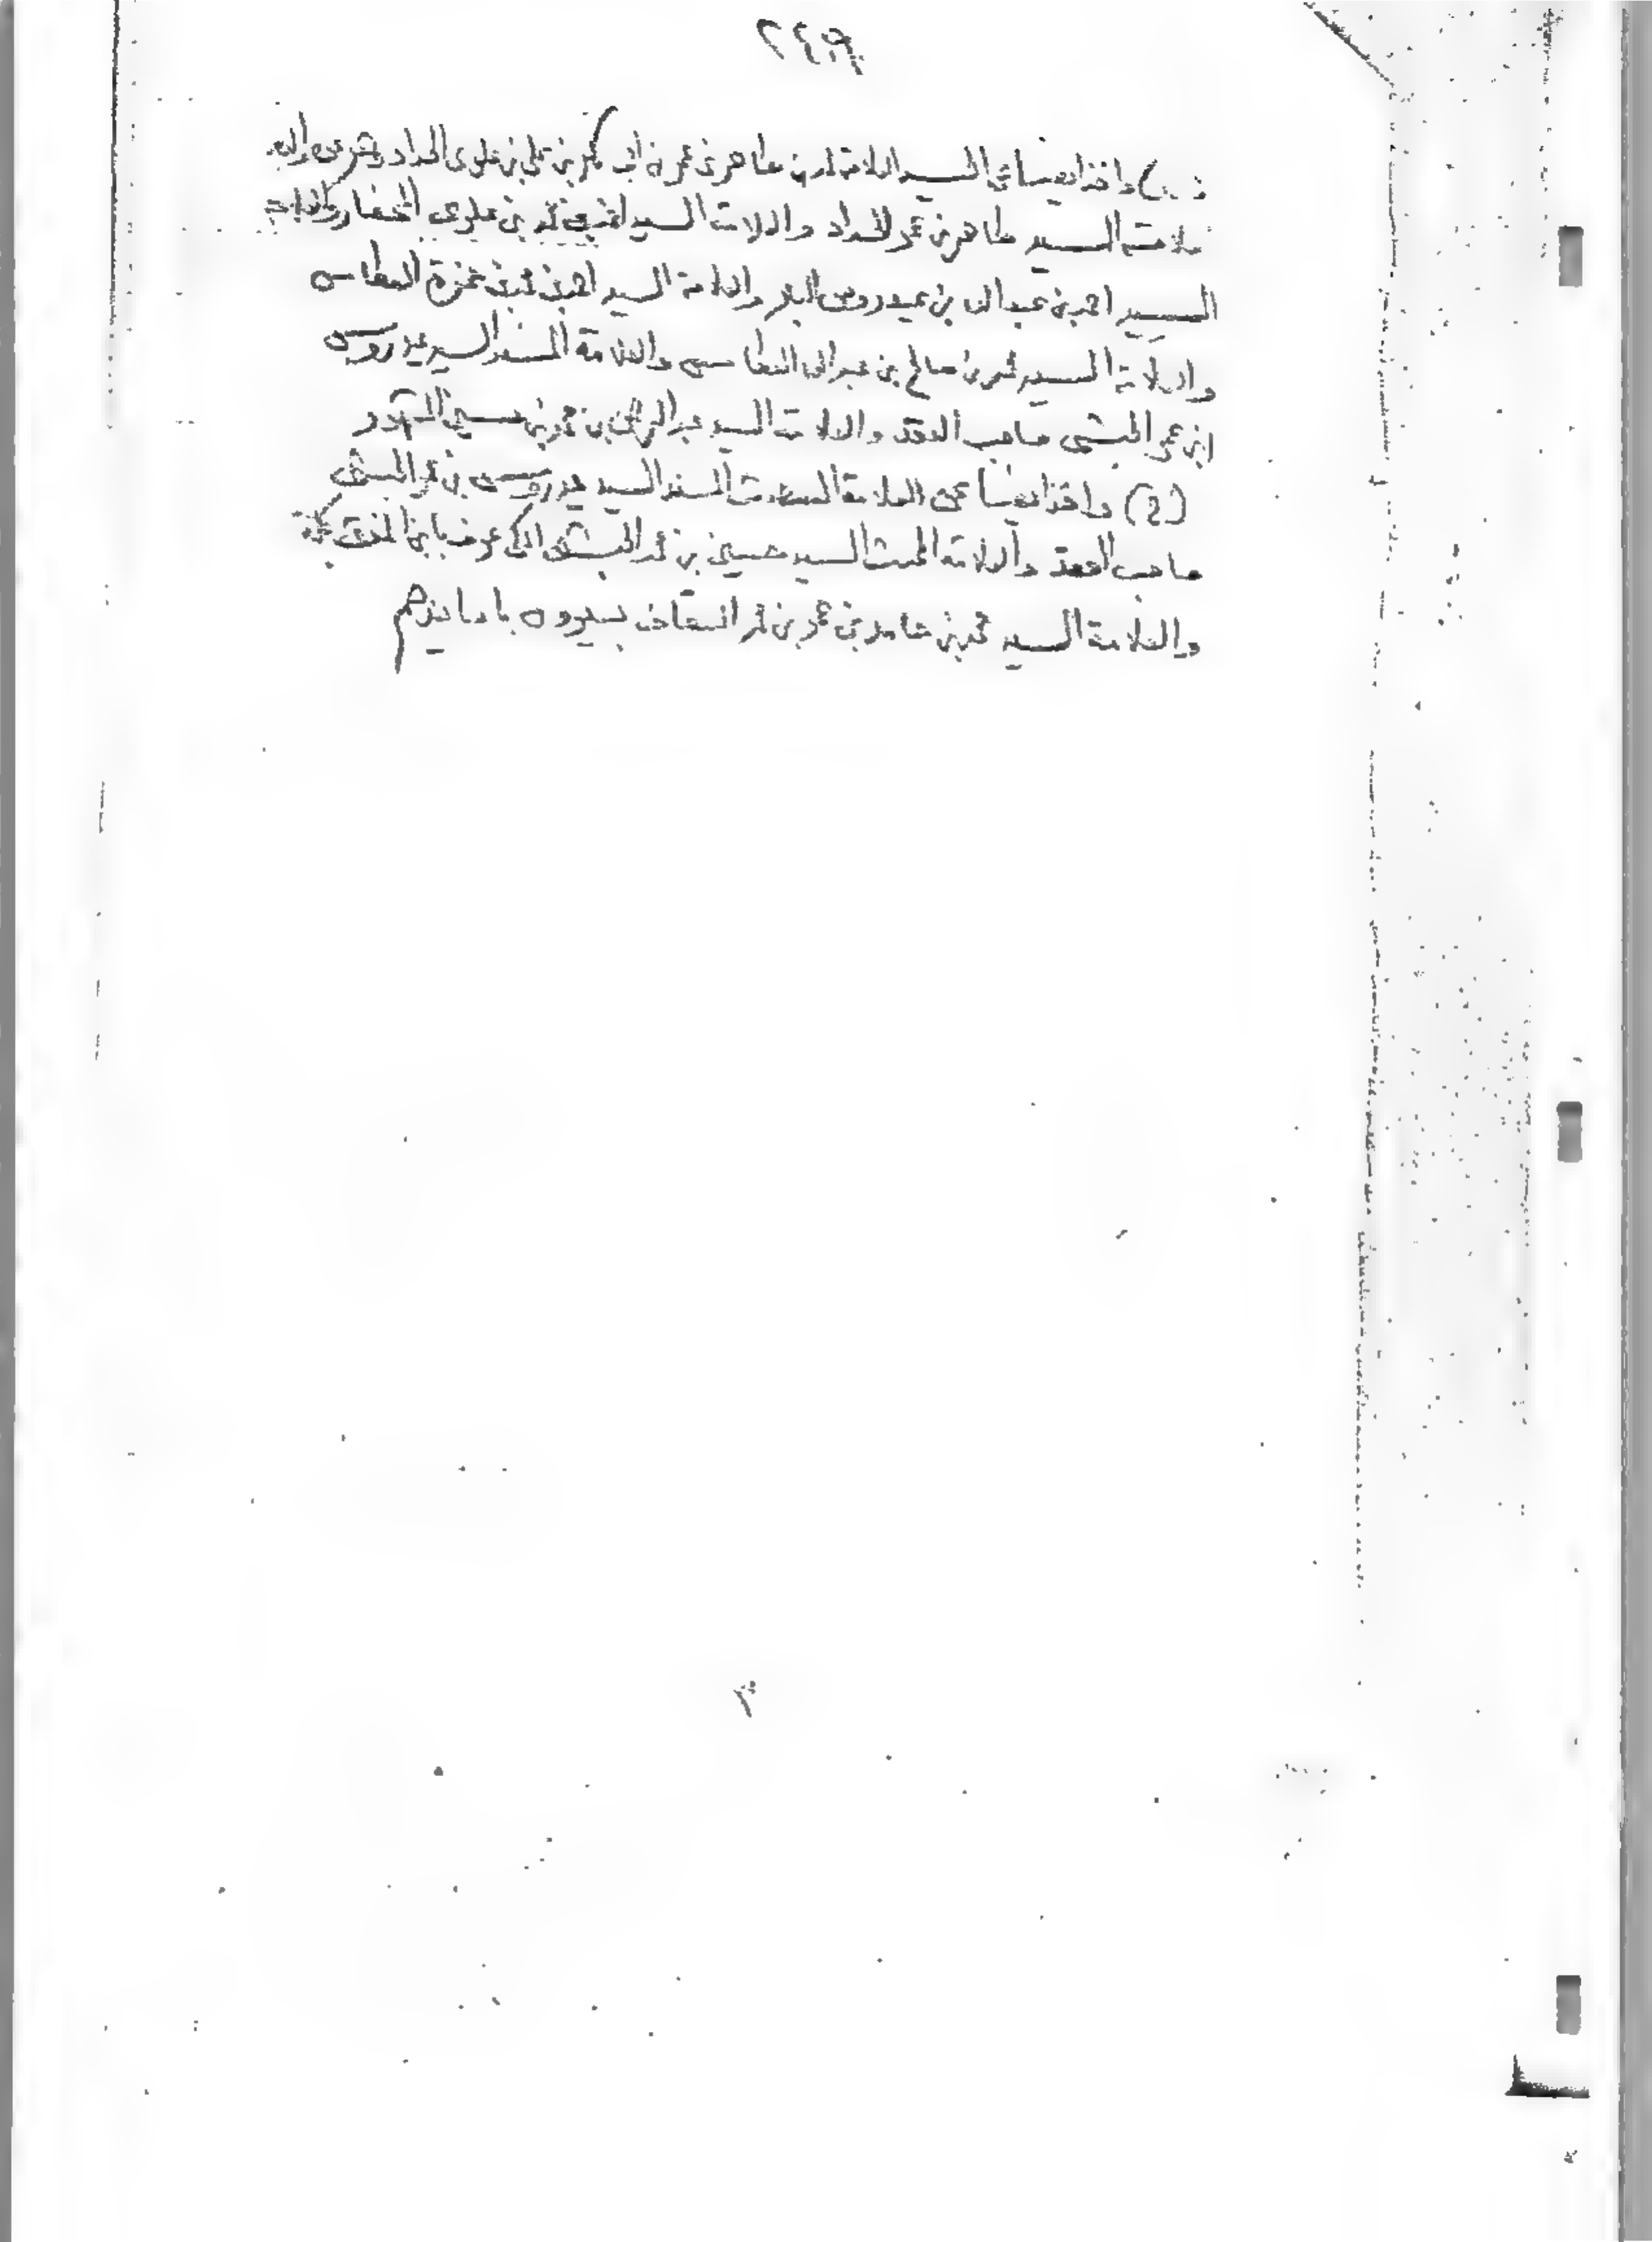 ٢٤٩
واخذ ايضا عن السيد العلامة طاهر بن عمر بن ابي بكر بن علي بن علوي الحداد
السيد طاهر بن عمر الحداد والعلامة السيد بن علوي
السيد احمد بن عبد الله بن عيدروس البار والعلامة السيد احمد بن محمد بن حمزة العطاس
والعلامة السيد عمر بن صالح بن عبد الله العطاس والعلامة المسند السيد عيدروس
ابن عمر الحبشي صاحب العقد والعلامة السيد عبد الرحمن بن محمد بن حسين المشهور
(2) واخذ ايضا عن العلامة المسند السيد عيدروس بن عمر الحبشي
صاحب العقد والعلامة المحدث السيد حسين بن محمد الحبشي المكي
والعلامة السيد محمد بن حامد بن عمر بن محمد السقاف بسيوون
٣